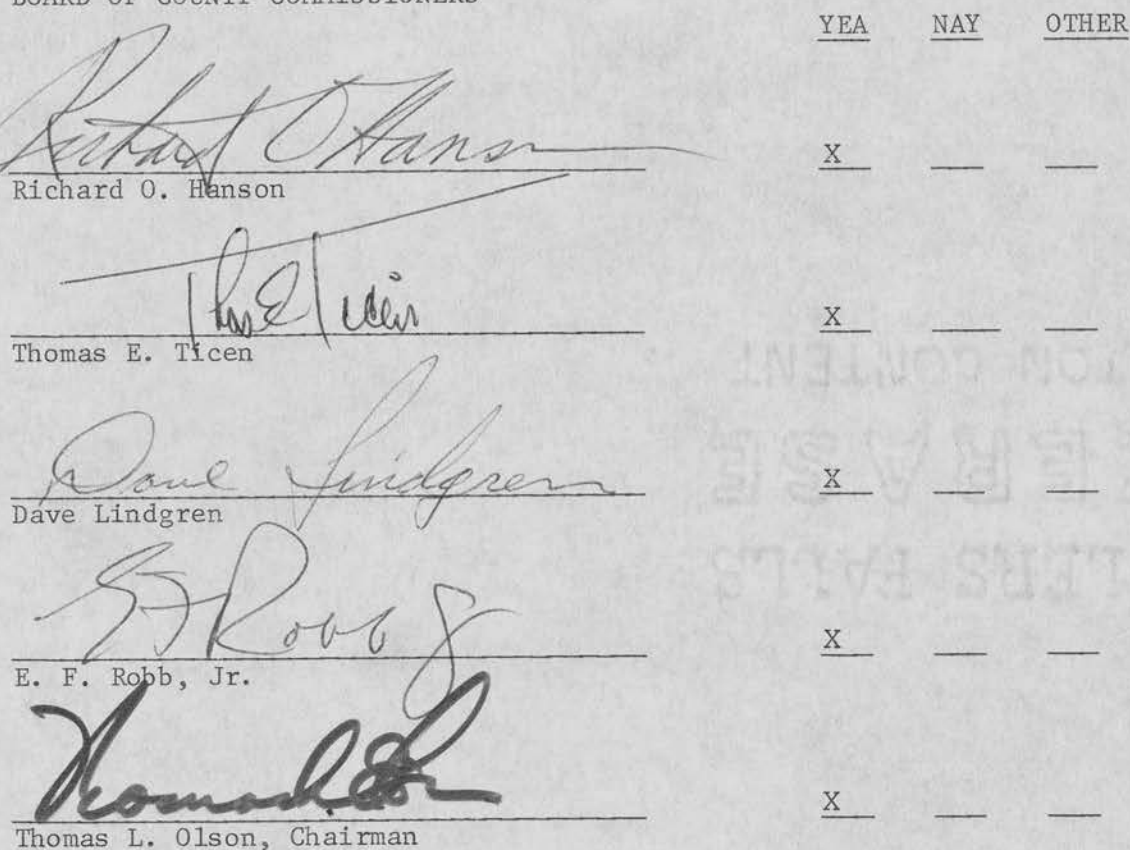 BOARD OF COUNTY COMMISSIONERS
YEA NAY OTHER
Richard O Hanson
X
Richard O. Hanson
Thos E Ticen
X
Thomas E. Ticen
Dave Lindgren
X
Dave Lindgren
E F Robb Jr
X
E. F. Robb, Jr.
X
Thomas L. Olson, Chairman